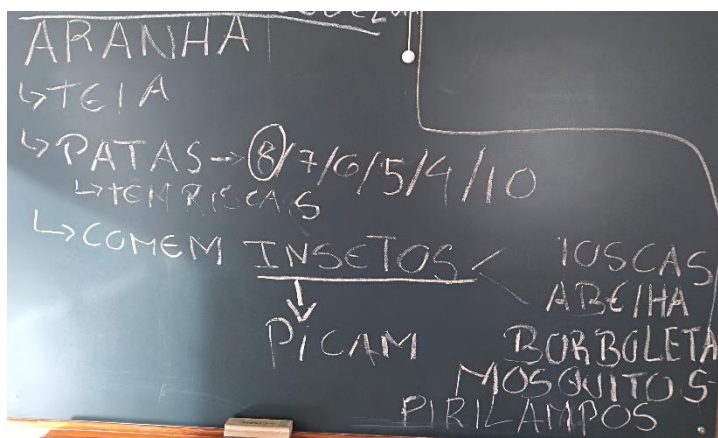 ARANHA
↳ TEIA
↳ PATAS → 8/7/6/5/4/10
↳ TEM RISCAS
↳ COMEM INSETOS < MOSCAS
ABELHA
↓
PICAM BORBOLETA
MOSQUITOS
PIRILAMPOS